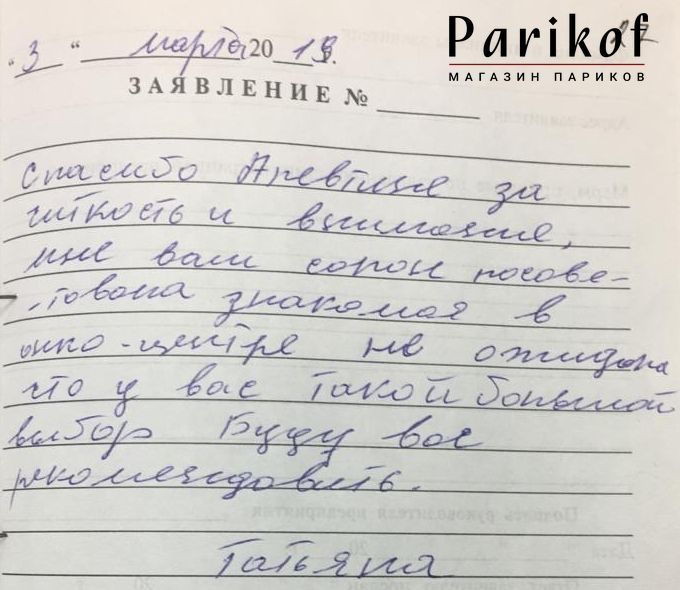 Parikof
МАГАЗИН ПАРИКОВ
27
"3" марта 2013г.
ЗАЯВЛЕНИЕ №
Спасибо за
чуткость и внимание,
мне ваш солон посове-
товала знакомая в
онко-центре не ожидала
что у вас такой большой
выбор Буду вас
рекомендовать.
Татьяна